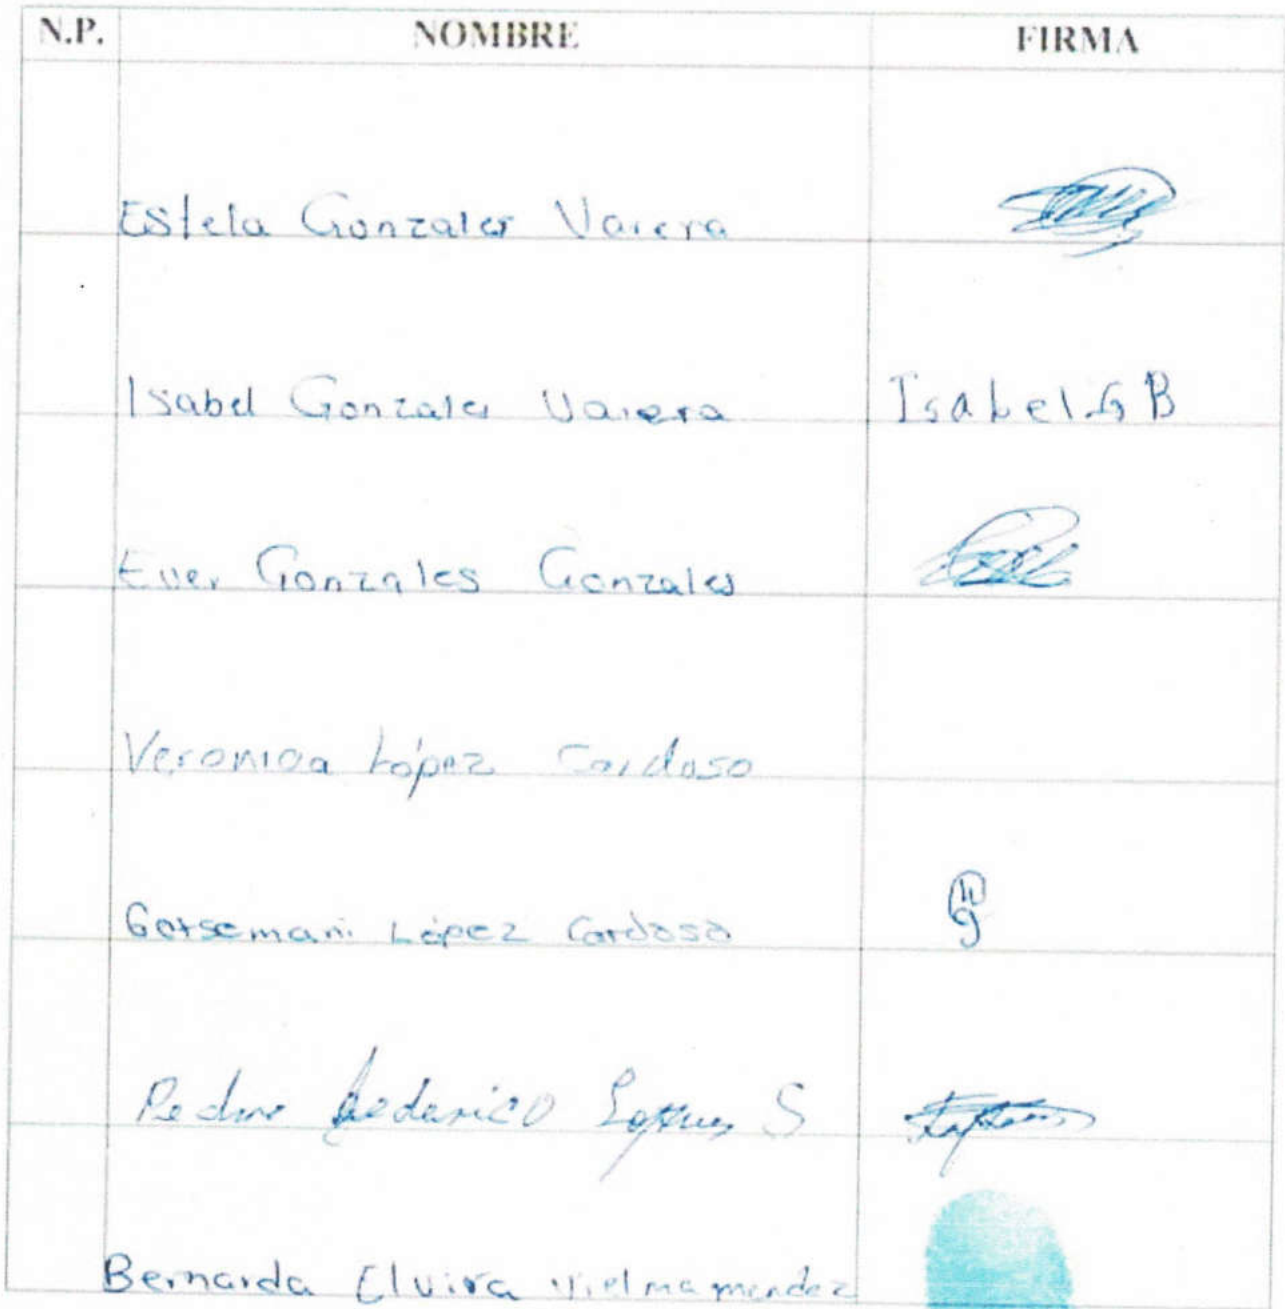 N.P. NOMBRE FIRMA
Estela Gonzales Varera
Isabel Gonzales Varera Isabel G B
Ever Gonzales Gonzales
Veronica López Cardoso
Getsemani López Cardoso
Pedro Federico S
Bernarda Elvira Vielma mendez